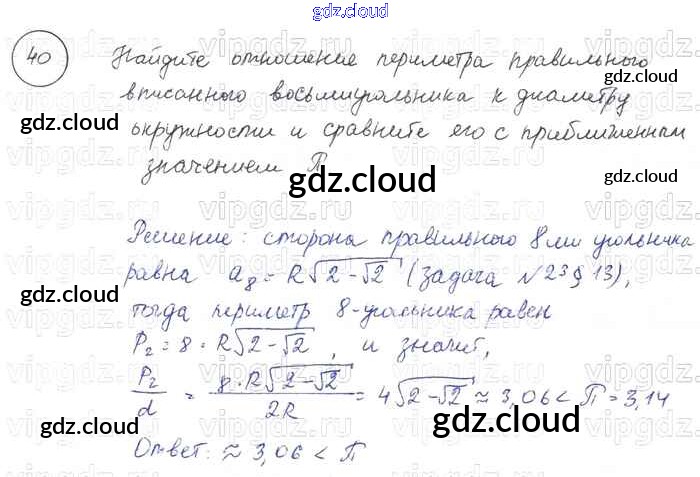 gdz.cloud
40 Найдите отношение периметра правильного
вписанного восьмиугольника к диаметру
окружности и сравните его с приближенным
значением П
gdz.cloud
gdz.cloud
gdz.cloud
gdz.cloud
Решение: сторона правильного 8ми угольника
равна a₈ = R√(2-√2) (Задача №23 § 13),
тогда периметр 8-угольника равен
P₂ = 8 · R√(2-√2), и значит,
P₂/d = 8·R√(2-√2)/2R = 4√(2-√2) ≈ 3,06 < П = 3,14
Ответ: ≈ 3,06 < П
gdz.cloud
gdz.cloud
gdz.cloud
gdz.cloud
gdz.cloud